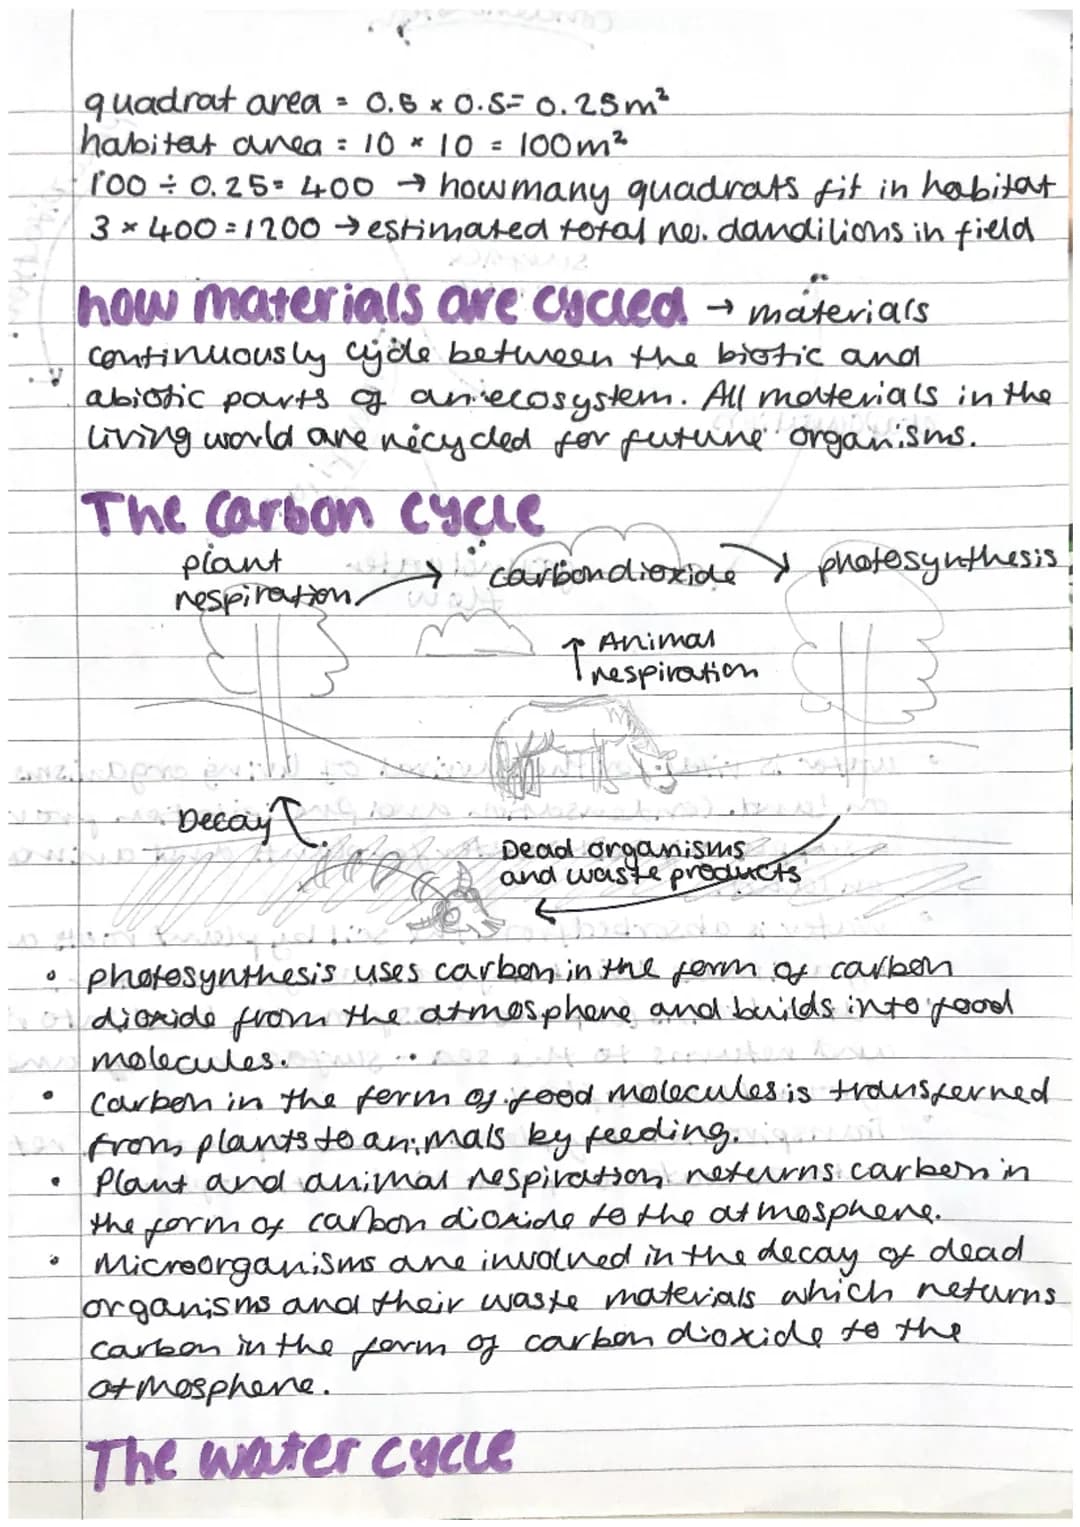 quadrat area = 0.5 × 0.5= 0.25m²
habitat area = 10 × 10 = 100m²
100 ÷ 0.25= 400 → how many quadrats fit in habitat
3 × 400 = 1200 → estimated total no. dandilions in field
how materials are cycled → materials
continuously cycle between the biotic and
abiotic parts of an ecosystem. All materials in the
living world are recycled for future organisms.
The Carbon cycle
plant
respiration → carbondioxide → photosynthesis
↑ Animal
respiration
Decay
Dead organisms
and waste products
• photosynthesis uses carbon in the form of carbon
dioxide from the atmosphere and builds into food
molecules.
• Carbon in the form of food molecules is transferred
from plants to animals by feeding.
• Plant and animal respiration returns carbon in
the form of carbon dioxide to the atmosphere.
• Microorganisms are involved in the decay of dead
organisms and their waste materials which returns
carbon in the form of carbon dioxide to the
atmosphere.
The water cycle